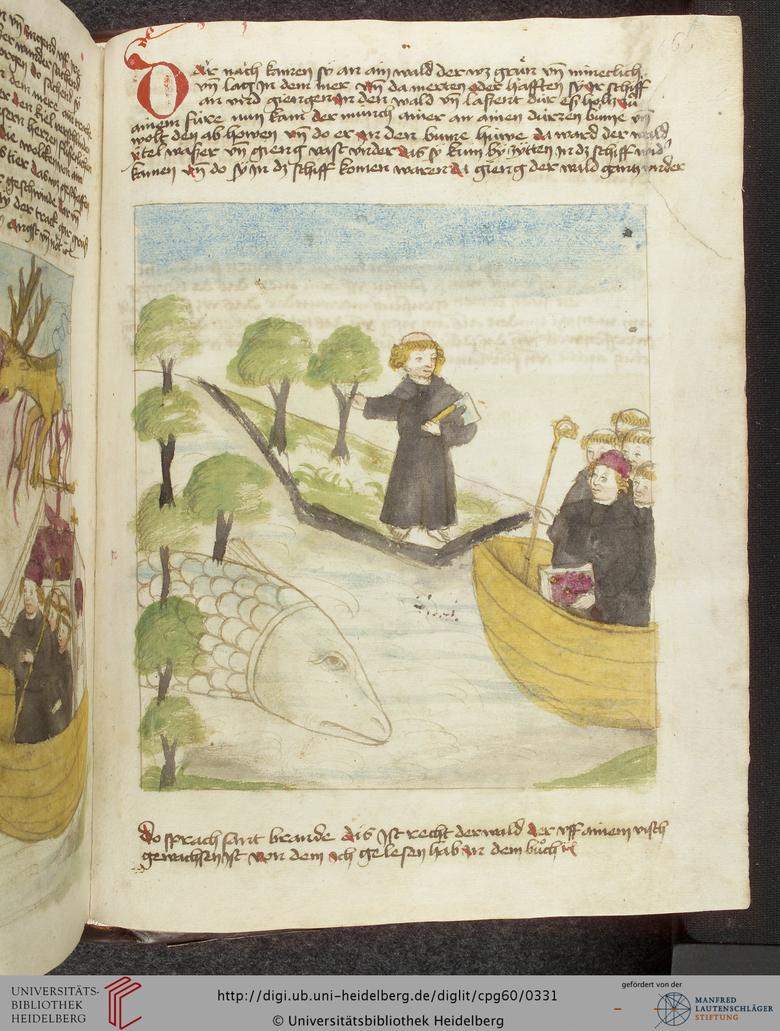 Dar nach kamen sy an ain wald der wz grün vn̄ minetlich
vn̄ lag jn dem mer vn̄ da merten oder hafften sy ir schiff
an vnd giengen jn den wald vn̄ lasent dür es holtz zů
ainem füre nun kam der münch ainer an ainen dürren bume vn̄
wolt den ab howen vn̄ do er jn den bume hüwe da ward der wald
vn̄ gieng vast vnder das sy kum by zytten jn dz schiff
kamen vn̄ do sy jn dz schiff komen waren da gieng der wald gantz vnder
do sprach sant brande dis ist recht der wald der vff ainem visch
gewachsen ist von dem ich gelesen hab jn dem bůch
UNIVERSITÄTS-
BIBLIOTHEK
HEIDELBERG
http://digi.ub.uni-heidelberg.de/diglit/cpg60/0331
© Universitätsbibliothek Heidelberg
gefördert von der
MANFRED
LAUTENSCHLÄGER
STIFTUNG